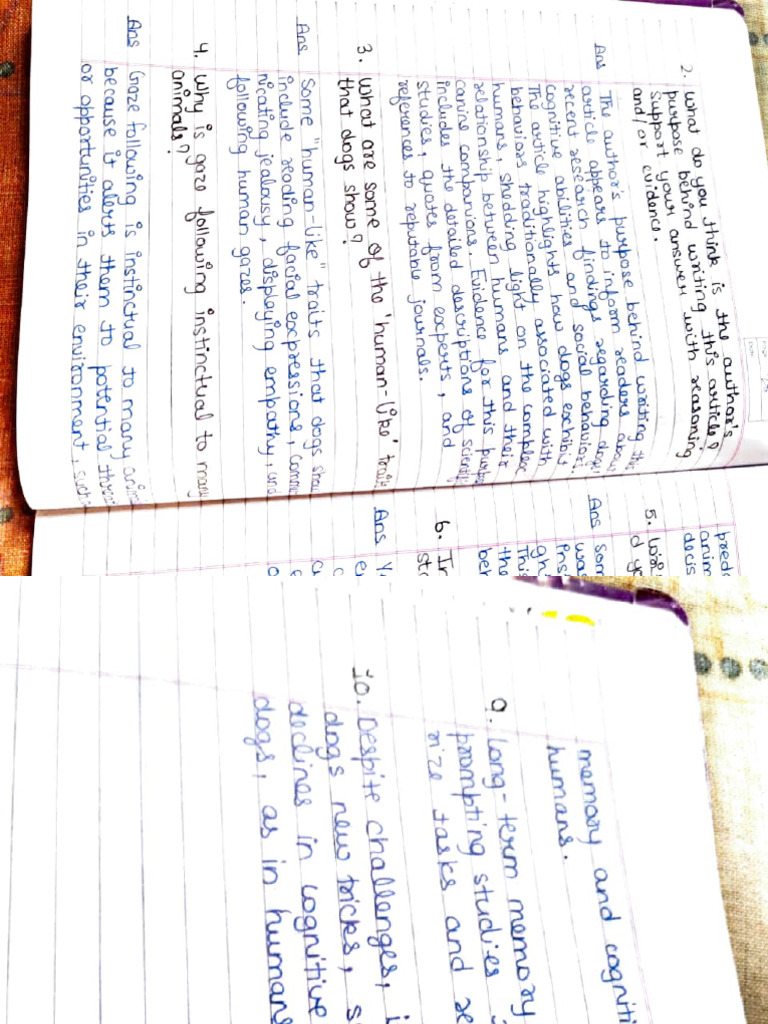 2. What do you think is the author's
purpose behind writing this article?
Support your answer with reasoning
and/or evidence.
Ans The author's purpose behind writing the
article appears to inform readers about
recent research findings regarding dogs'
cognitive abilities and social behaviors.
The article highlights how dogs exhibit
behaviors traditionally associated with
humans, shedding light on the complex
relationship between humans and their
canine companions. Evidence for this
includes the detailed descriptions of
studies, quotes from experts, and
references to reputable journals.
3. What are some of the 'human-like'
that dogs show?
Ans Some "human-like" traits that dogs
include reading facial expressions,
nicating jealousy, displaying empathy, and
following human gazes.
4. Why is gaze following instinctual to many
animals?
Ans Gaze following is instinctual to many
because it alerts them to potential
or opportunities in their environment,
5.
Ans
6. In
Ans
memory and
humans.
9. Long-term memory
prompting studies
nize tasks and
10. Despite challenges,
dogs new tricks,
declines in cognitive
dogs, as in humans